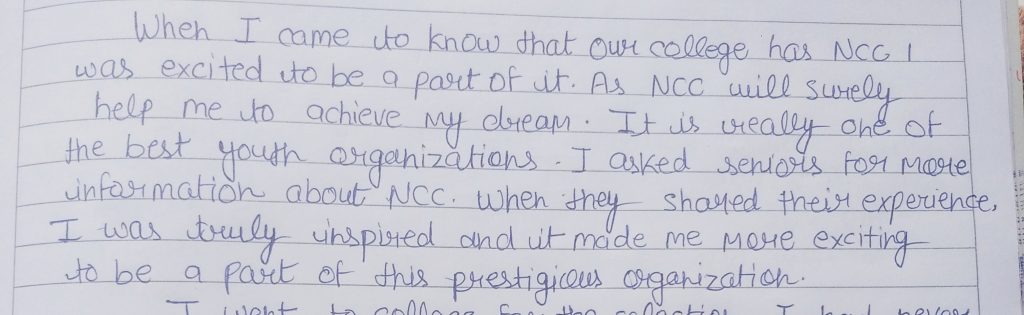 When I came to know that our college has NCC I
was excited to be a part of it. As NCC will surely
help me to achieve my dream. It is really one of
the best youth organizations. I asked seniors for more
information about NCC. When they shared their experience,
I was truly inspired and it made me more exciting
to be a part of this prestigious organization.